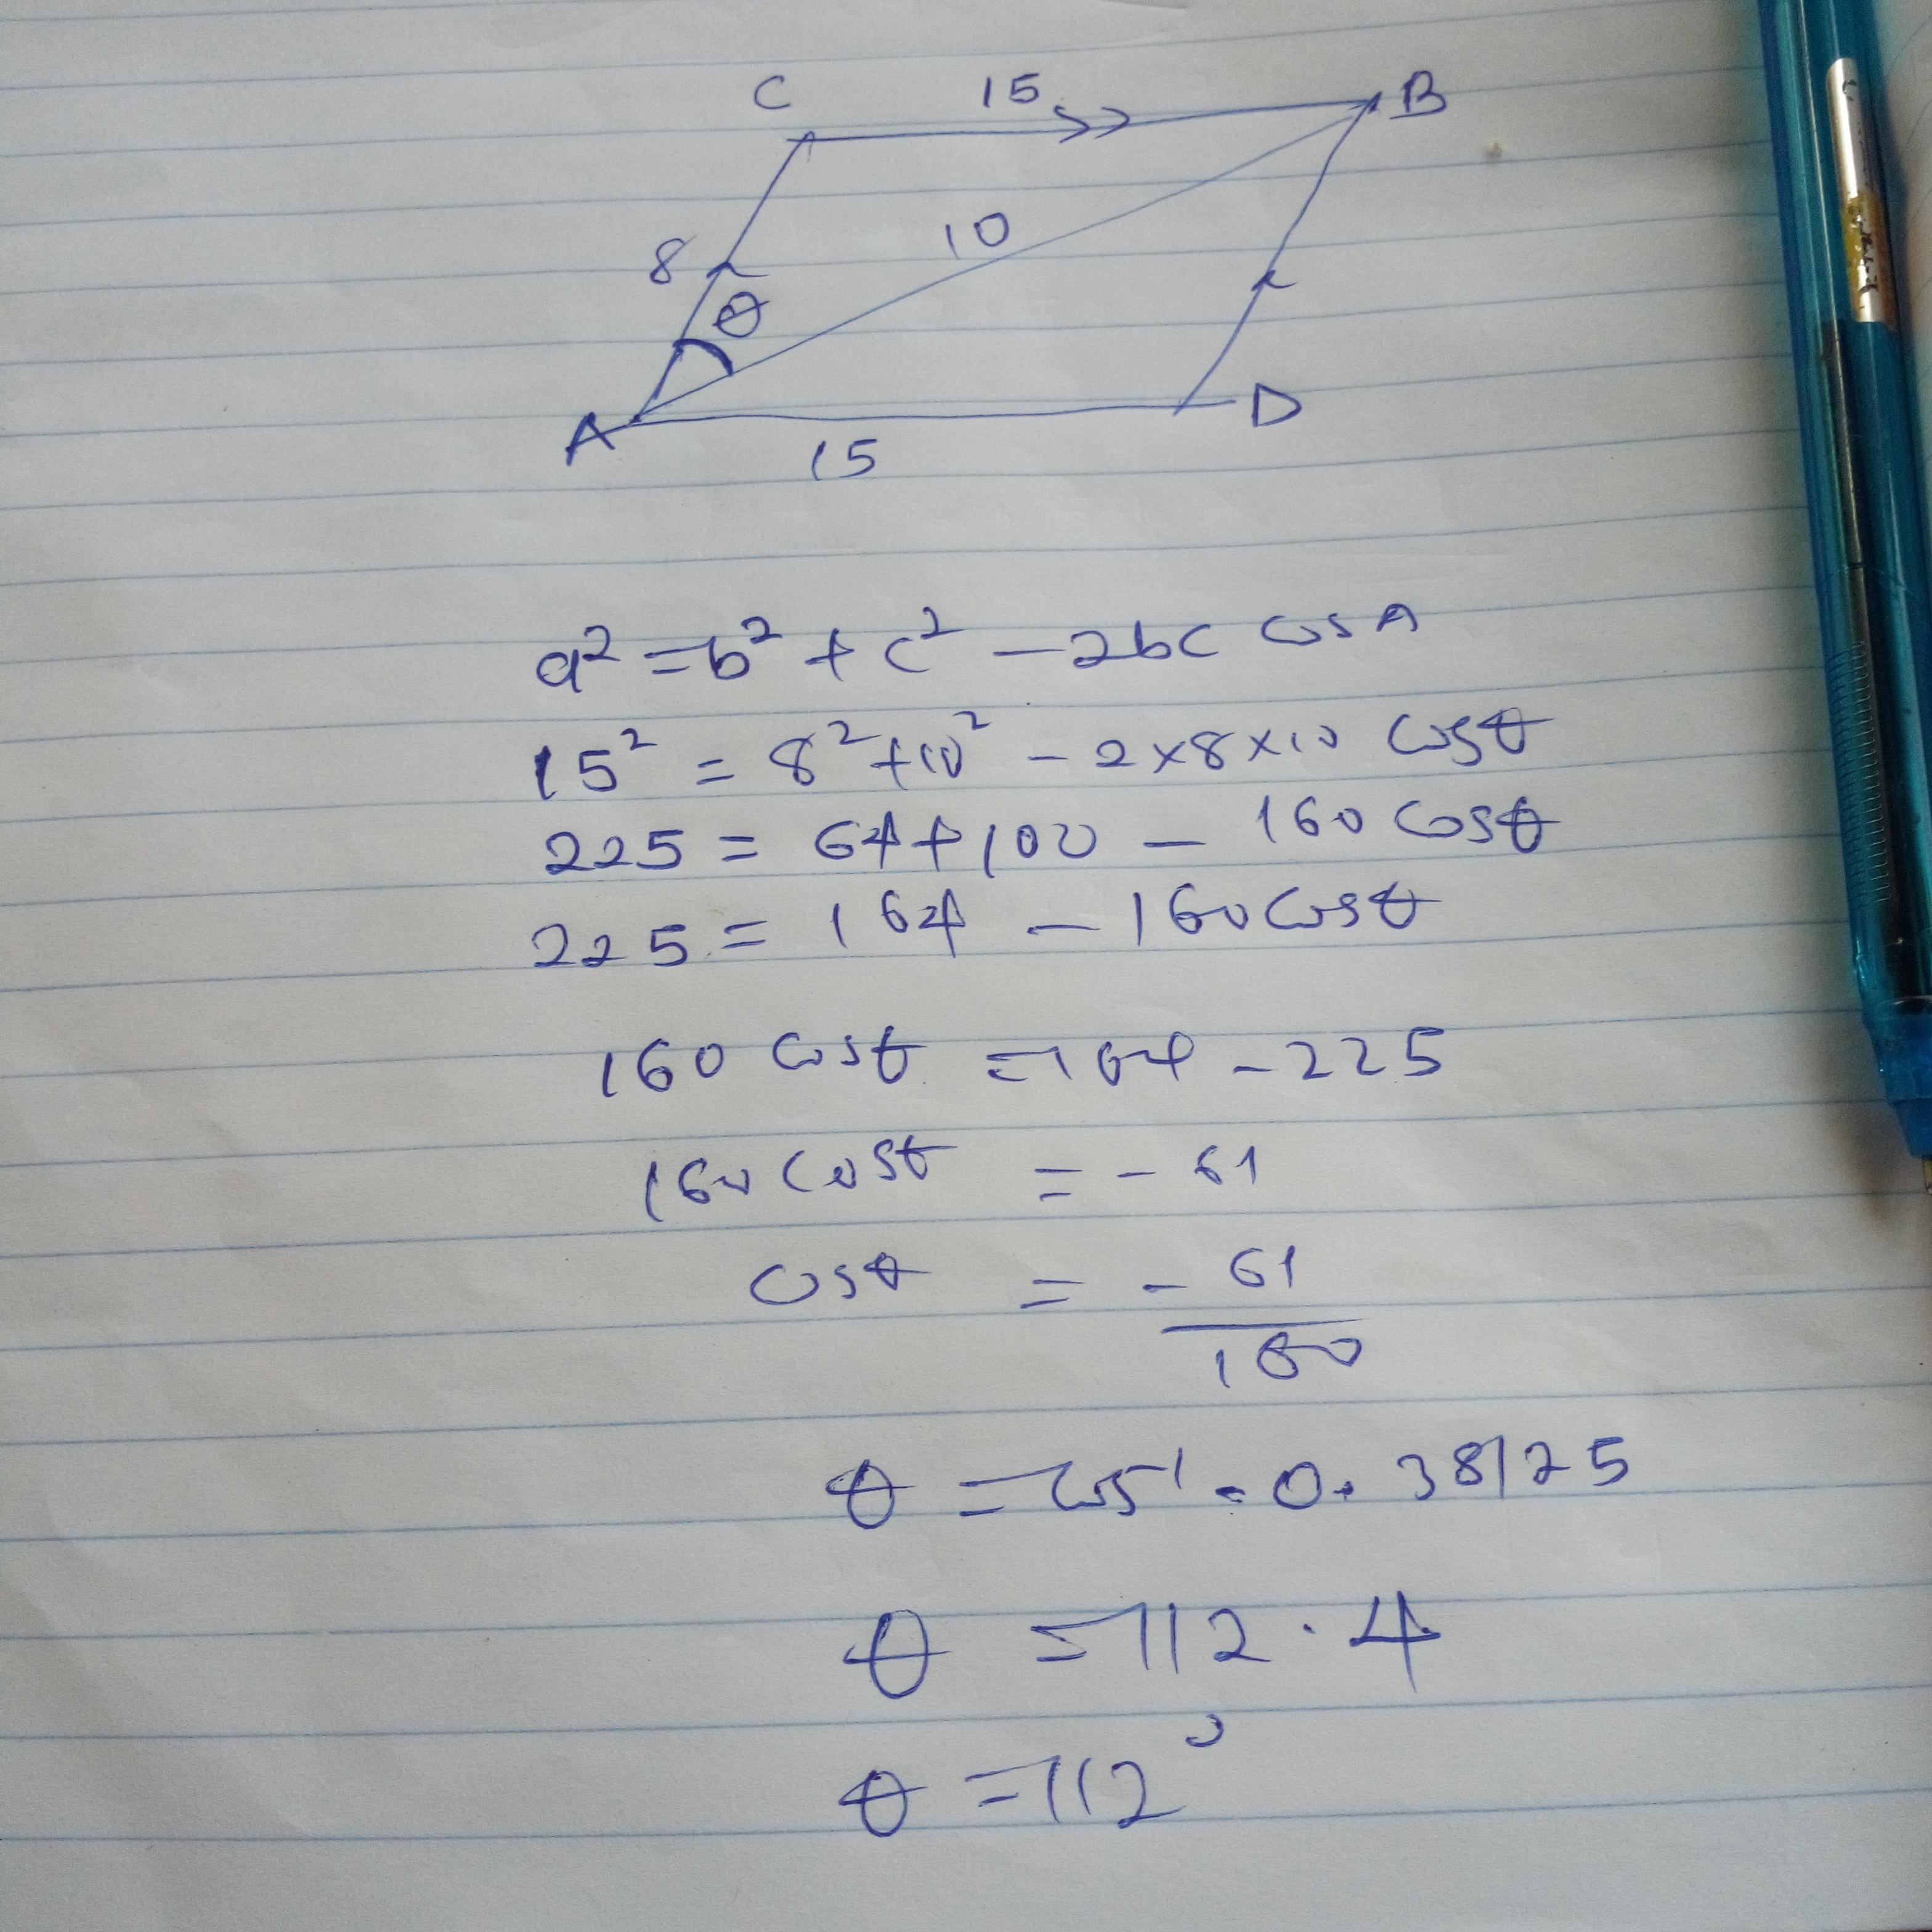 C 15 B
8 10
θ
A 15 D
a² = b² + c² - 2bc cos A
15² = 8² + 10² - 2×8×10 cosθ
225 = 64 + 100 - 160 cosθ
225 = 164 - 160 cosθ
160 cosθ = 164 - 225
160 cosθ = - 61
cosθ = - 61
160
θ = cos⁻¹ - 0.38125
θ = 112.4
θ = 112°